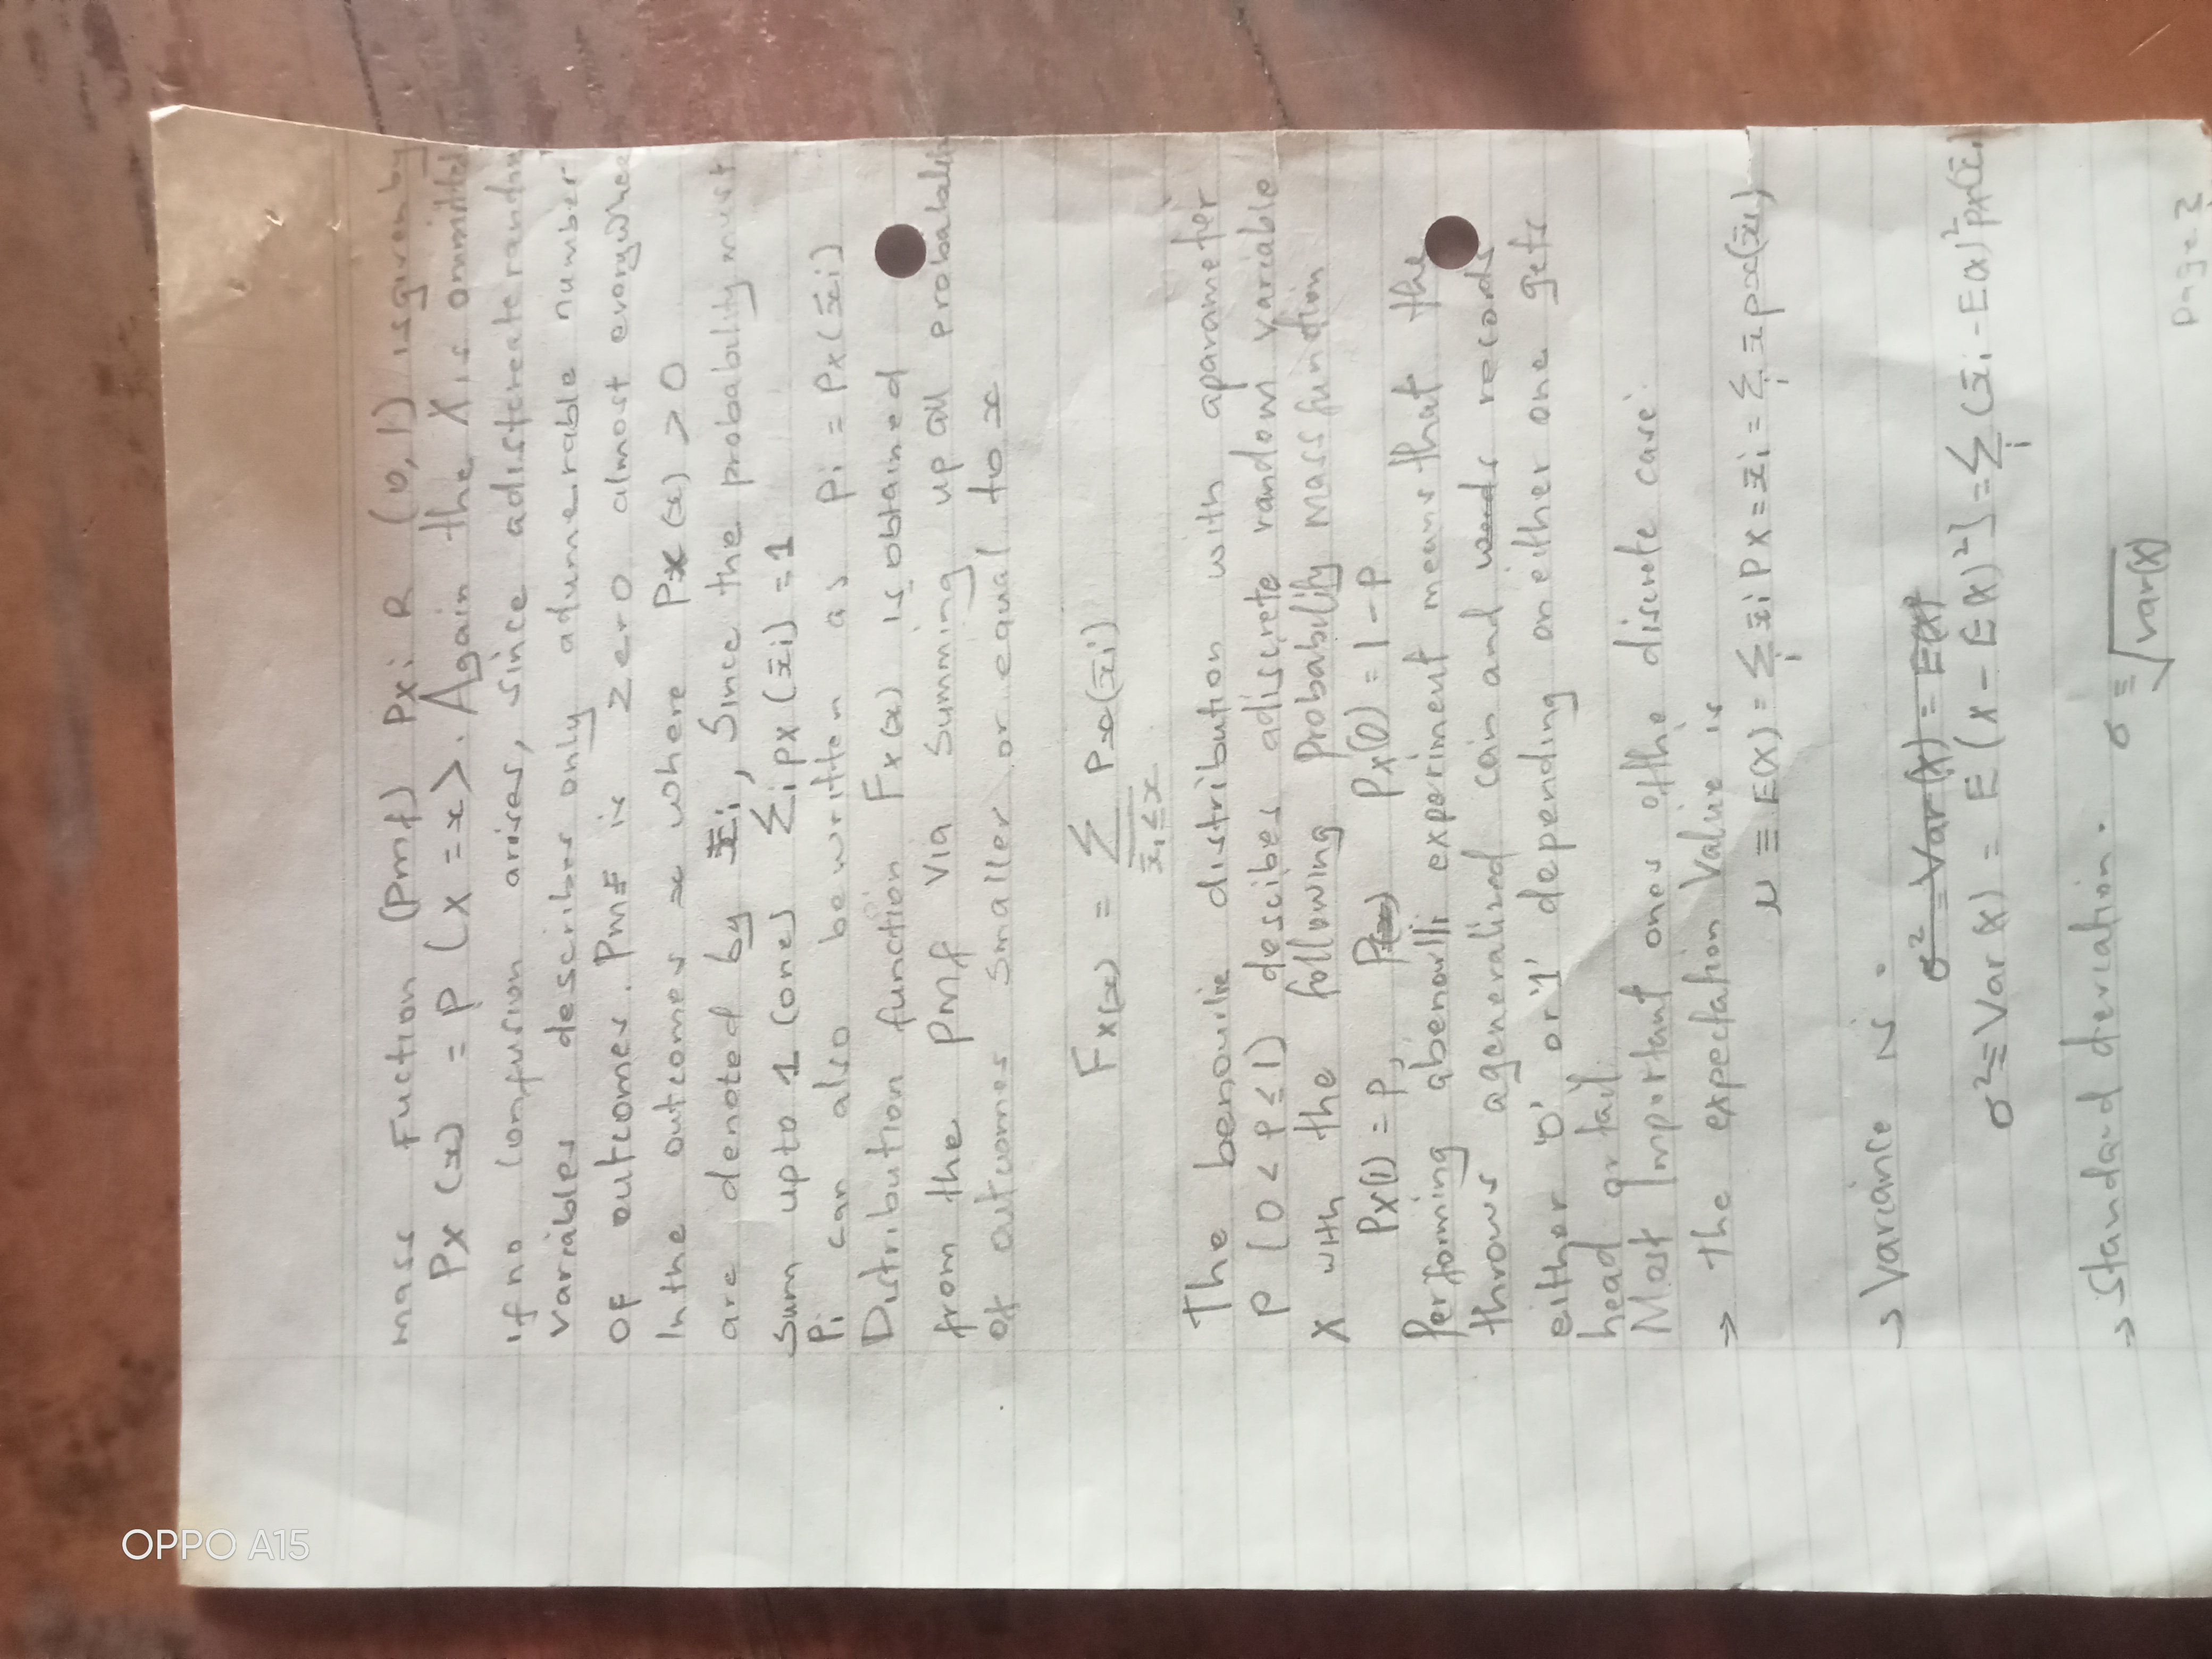 mass Fuction (Pmf) Px: R (0,1) is given by
Px (x) = P (X = x>. Again the X is ommited
if no confusion arises, since a disfereate random
variables describes only a dumerable number
OF outcomes. PmF is zero almost everywhere
In the outcomes x where Px (x) > 0
are denoted by x̄i, Since the probability must
Sum up to 1 (one) Σi px (x̄i) = 1
Pi can also be written as Pi = Px (x̄i)
Distribution function Fx (x) is obtained
from the Pmf via summing up all probabali
of outcomes smaller or equal to x
Fx(x) = Σ Px(x̄i)
x̄i ≤ x
The benoulie distribution with a parameter
P (0 < P ≤ 1) descibes a discrete random variable
X with the following probability mass fundion
Px(1) = P, Px(0) = 1 - P
Performing a benourlli experiment means that the
throws a generalized coin and records
either '0' or '1' depending on either one gets
head or tail.
Most Important ones of the discrete case.
→ the expectation value is
μ ≡ E(X) = Σi x̄i PX = x̄i = Σi x̄ px(x̄i)
→ Variance is.
σ² = Var(X) = E(X)
σ² ≡ Var (X) = E (X - E(X)²] = Σi (x̄i - E(X)² px(x̄i
→ Standard deviation. σ ≡ √var(X)
page 2